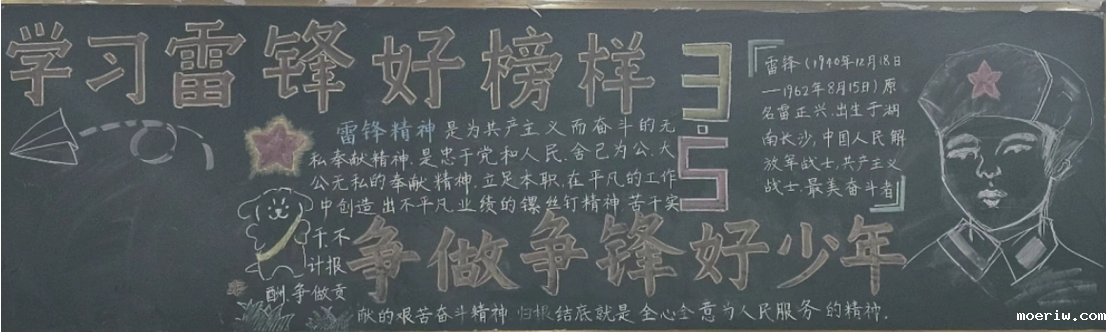 学习雷锋好榜样
3.5
雷锋精神是为共产主义而奋斗的无
私奉献精神.是忠于党和人民.舍己为公.大
公无私的奉献精神.立足本职.在平凡的工作
中创造出不平凡业绩的镙丝钉精神 苦干实
干.不
计报
酬.争做贡
献的艰苦奋斗精神 归根结底就是 全心全意为人民服务的精神.
雷锋(1940年12月18日
—1962年8月15日)原
名雷正兴.出生于湖
南长沙,中国人民解
放军战士.共产主义
战士.最美奋斗者
争做争锋好少年
www.moeriw.com